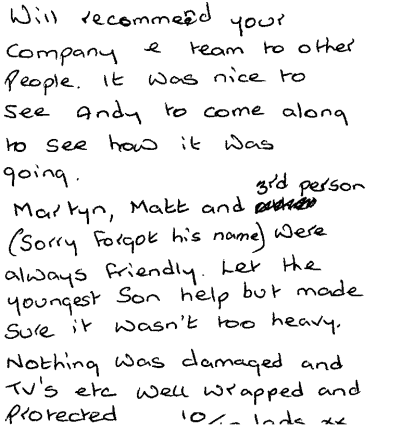 Will recommend your
Company & team to other
People. it was nice to
See Andy to come along
to see how it was
going.
3rd person
Martyn, Matt and
(Sorry Forgot his name) were
always friendly. Let the
youngest Son help but made
Sure it wasn't too heavy.
Nothing was damaged and
TV's etc well wrapped and
Protected